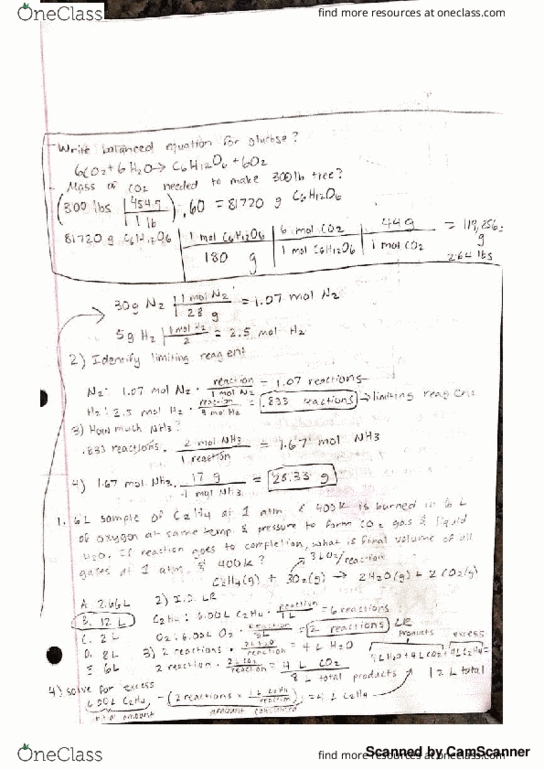 OneClass
find more resources at oneclass.com
Write balanced equation for glucose?
6CO2+6H2O→ C6H12O6+6O2
Mass of CO2 needed to make 300lb tree?
(300 lbs | 454 g / 1 lb) .60 = 81720 g C6H12O6
81720 g C6H12O6 | 1 mol C6H12O6 / 180 g | 6 mol CO2 / 1 mol C6H12O6 | 44g / 1 mol CO2 =
g
264 lbs
30g N2 | 1 mol N2 / 28 g = 1.07 mol N2
5g H2 | 1 mol H2 / 2 = 2.5 mol H2
2) Identify limiting reagent
N2: 1.07 mol N2 · reaction / 1 mol N2 = 1.07 reactions
H2: 2.5 mol H2 · reaction / 3 mol H2 = .833 reactions → limiting reagent
3) How much NH3?
.833 reactions. 2 mol NH3 / 1 reaction = 1.67 mol NH3
4) 1.67 mol NH3. 17 g / 1 mol NH3 = 28.33 g
1. 6L sample of C2H4 at 1 atm & 400K is burned in 6 L
of oxygen at same temp. & pressure to form CO2 gas & liquid
H2O. If reaction goes to completion, what is final volume of all
gases at 1 atm & 400k?
= 3LO2/reaction
C2H4(g) + 3O2(g) → 2H2O(g) + 2CO2(g)
A. 2.66L
B. 12 L
C. 2L
D. 8L
E 6L
2) I.D LR
C2H4: 6.00L C2H4 · reaction / 1L = 6 reactions
O2: 6.00L O2 · reaction / 3L = 2 reactions LR
3) 2 reactions · 2L H2O / reaction = 4 L H2O
2 reaction · 2L CO2 / reaction = 4 L CO2
8 L total products
products
excess
4L H2O+4L CO2+4L C2H4=
12L total
4) solve for excess
6.00L C2H4 - (2 reactions × 1 L C2H4 / reaction) = 4 L C2H4
initial amount
amount consumed
Scanned by CamScanner
OneClass
find more resources at oneclass.com